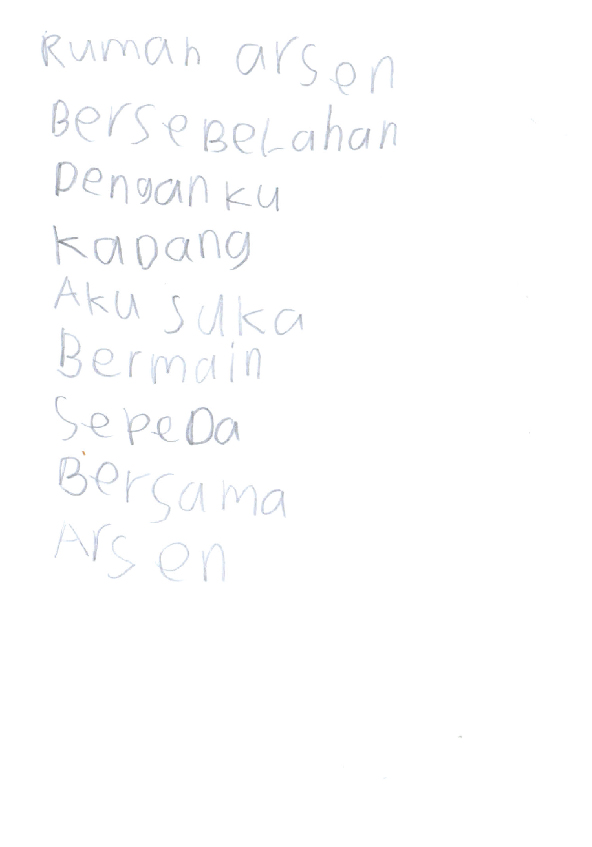 Rumah arsen
BerseBeLahan
Denganku
KaDang
Aku suka
Bermain
SepeDa
Bersama
Arsen